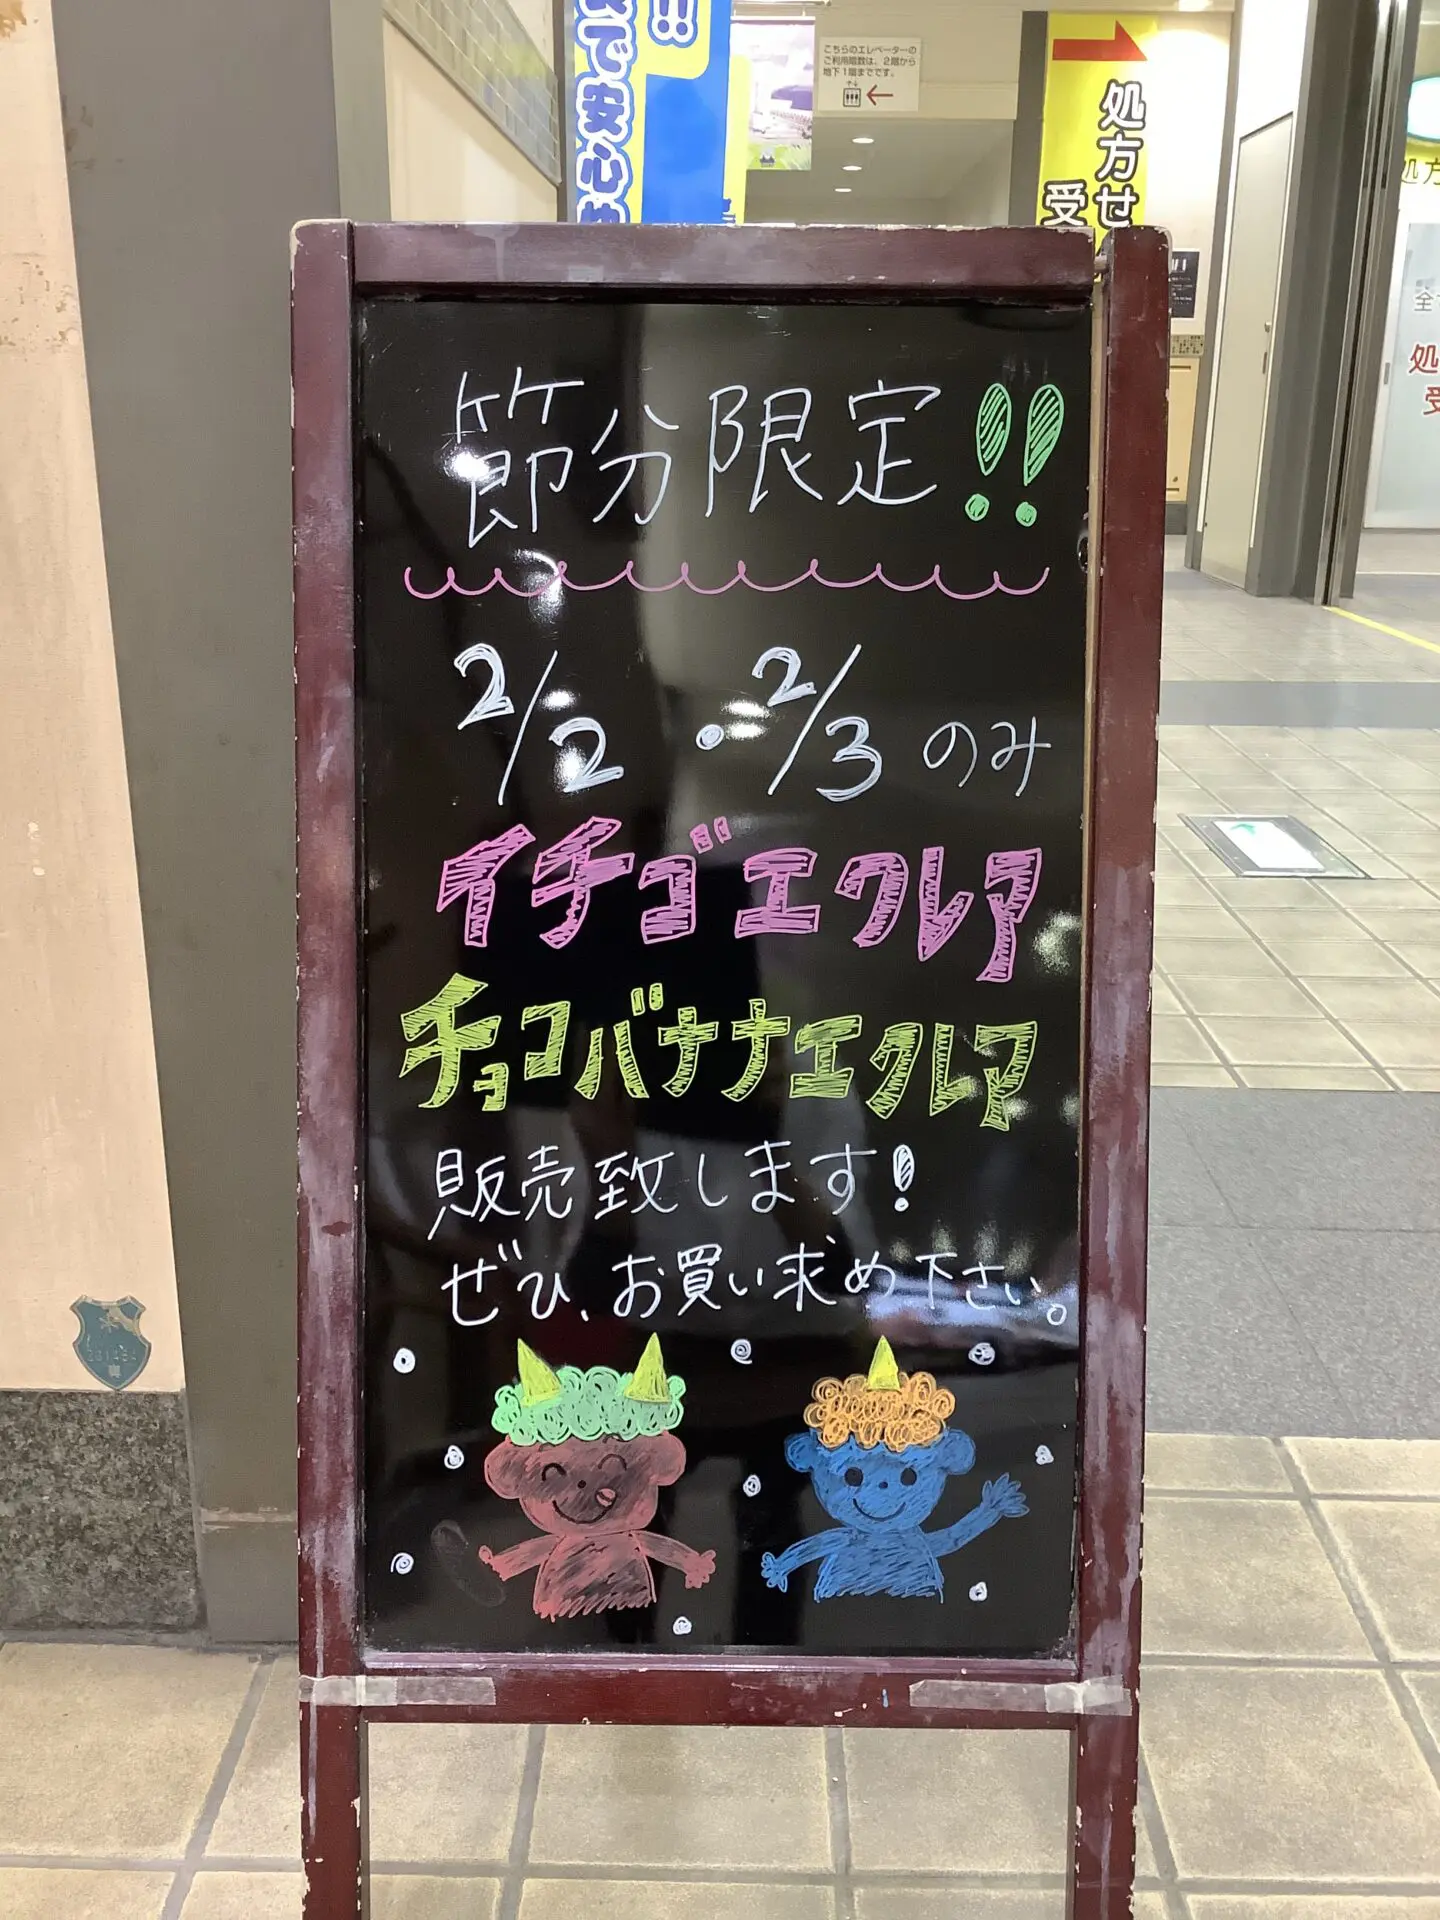 !!
で安心
こちらのエレベーターの
ご利用階数は、2階から
地下1階までです。
処方せ
受
処方
全
処
受
節分限定!!
2/2・2/3のみ
イチゴエクレア
チョコバナナエクレア
販売致します!
ぜひ、お買い求め下さい。